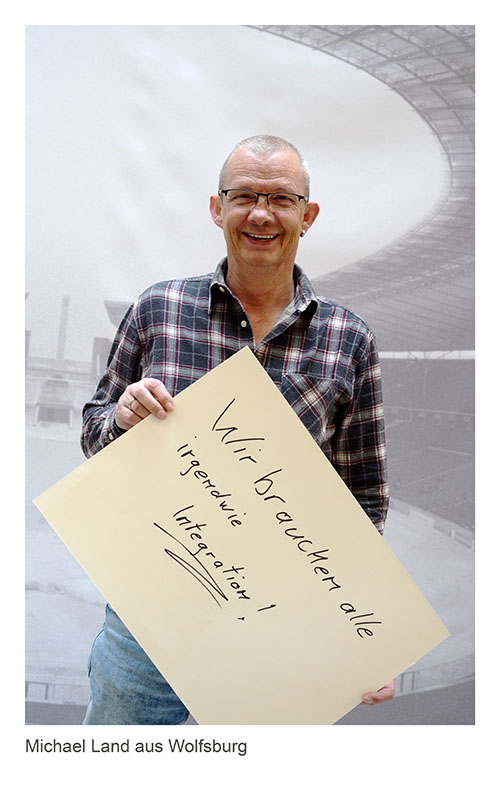 Wir brauchen alle
irgendwie
Integration!
Michael Land aus Wolfsburg